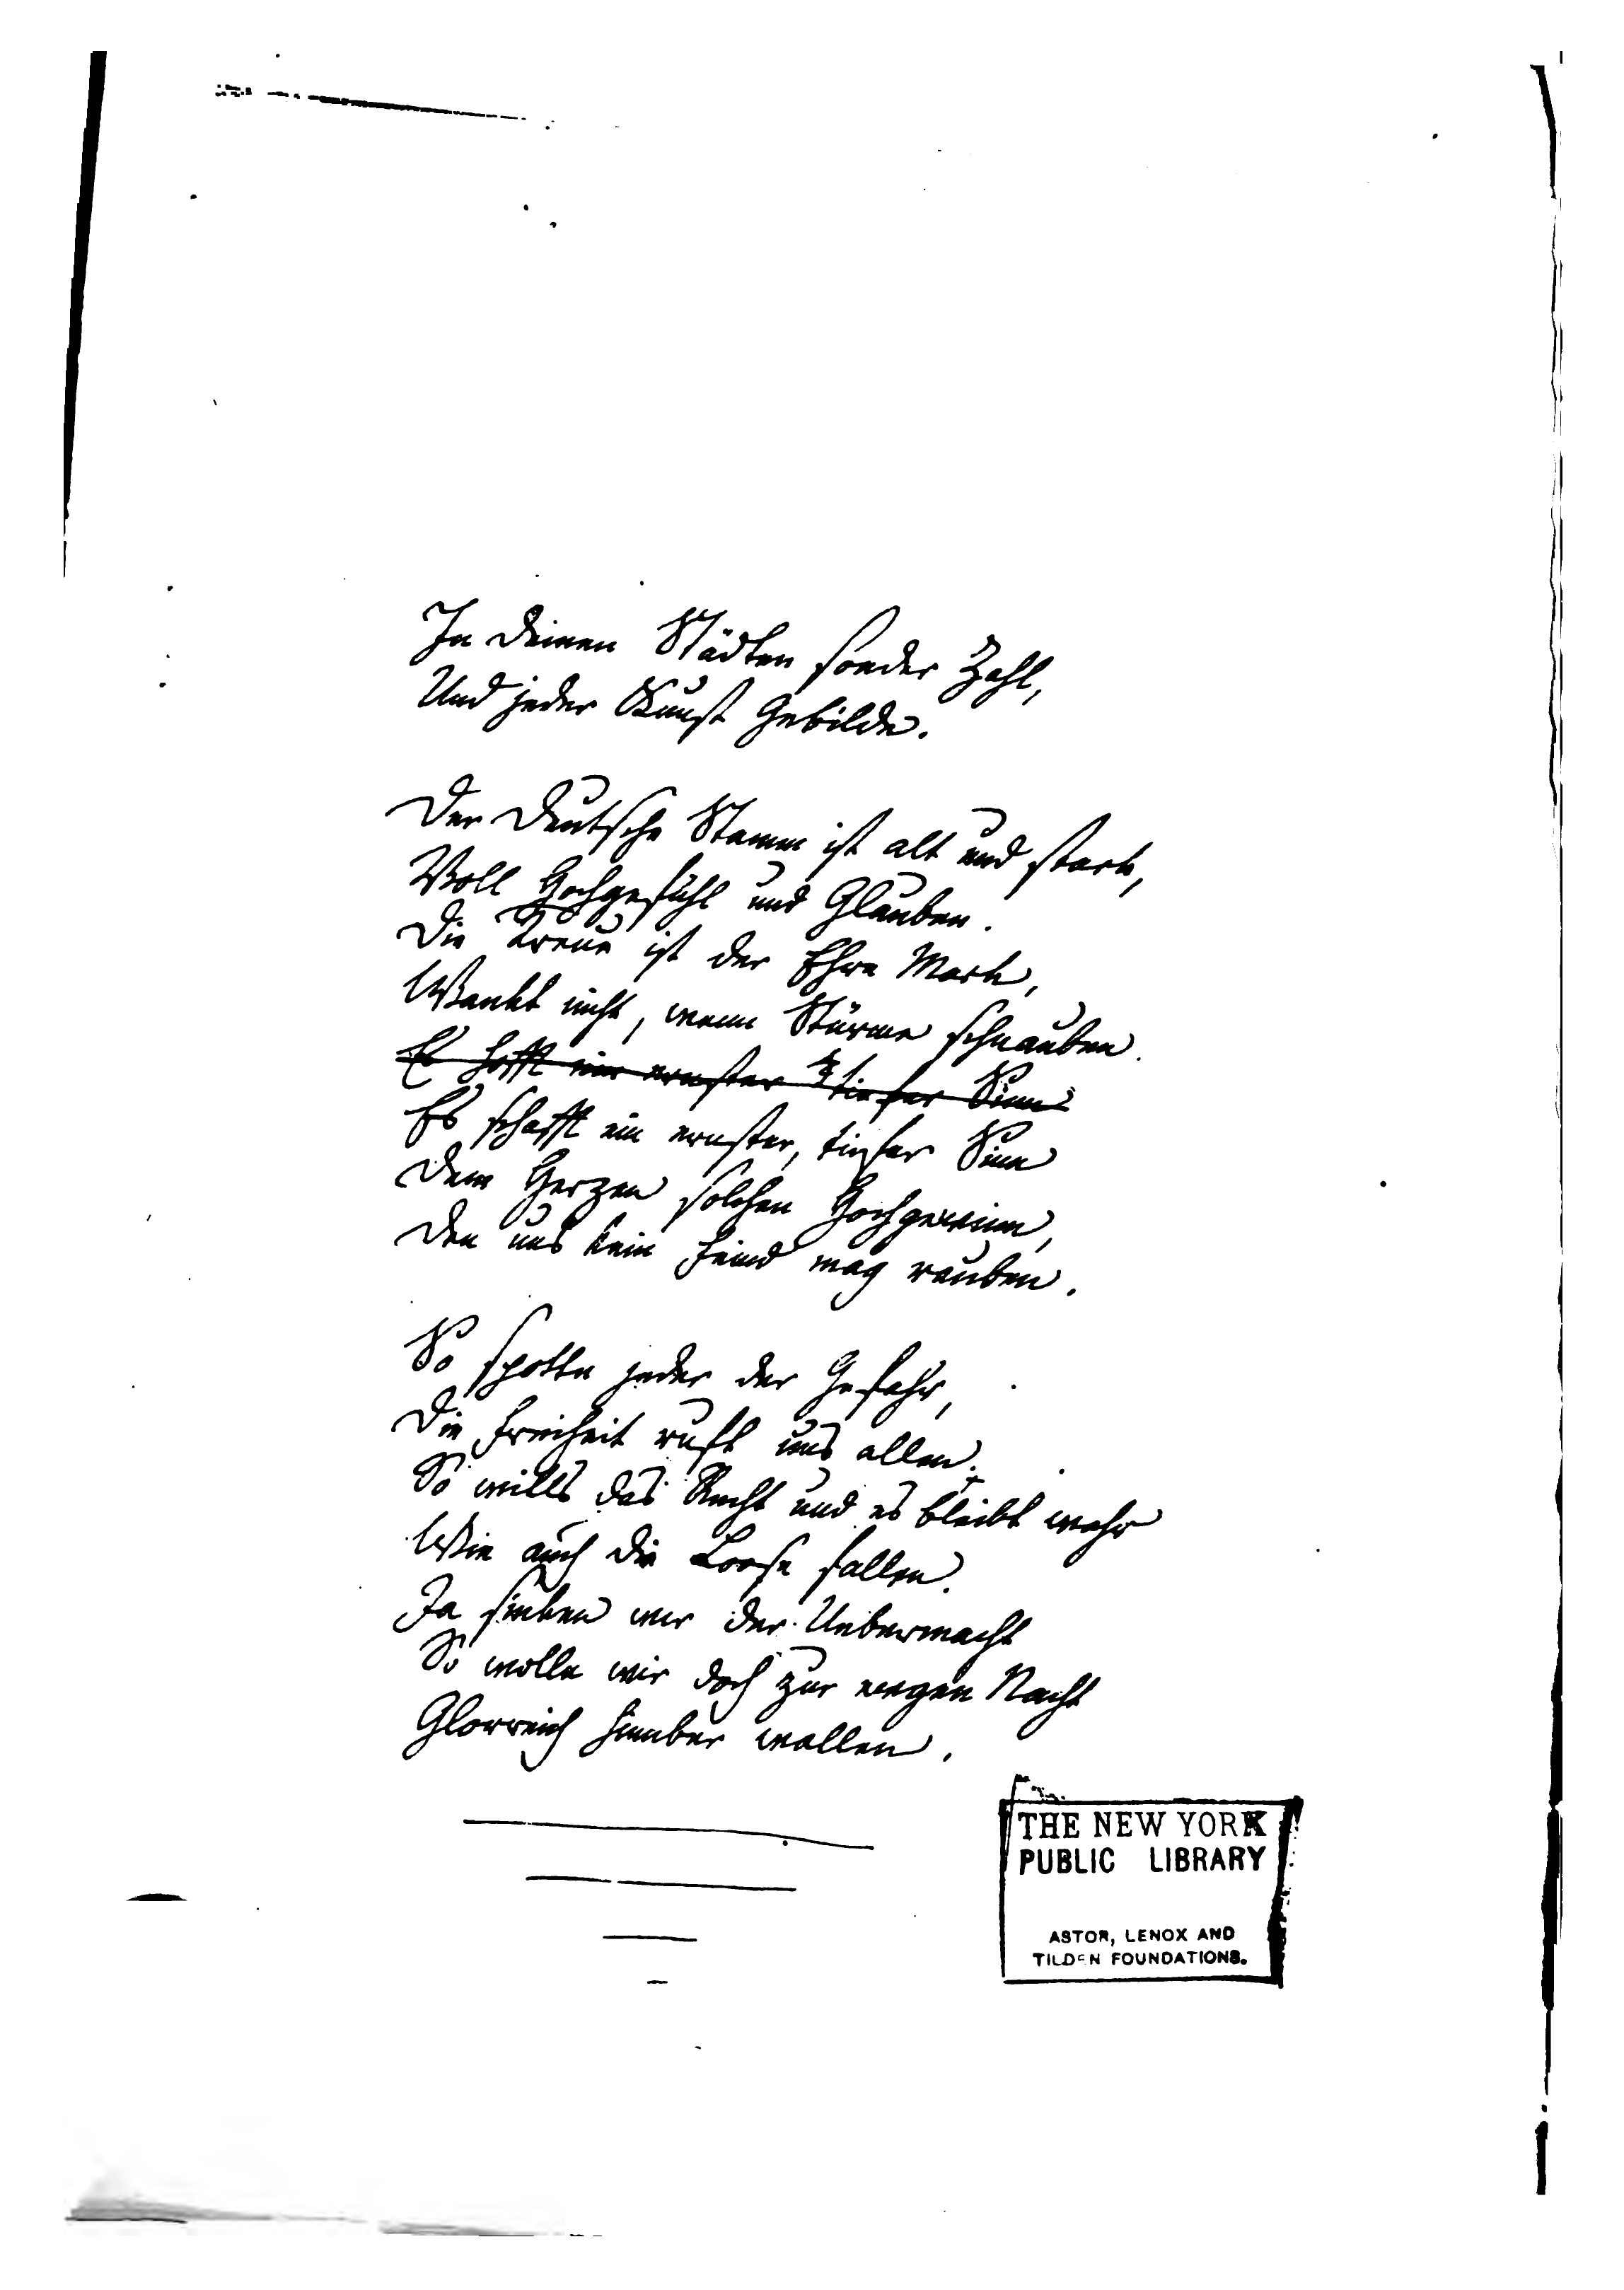 In deinen Städten sonder Zahl,
Und jeder Kunst Gebilde.
Der Deutsche Stamm ist alt und stark,
Voll Hochgefühl und Glauben.
Die Treue ist der Ehre Mark,
Wankt nicht, wenn Stürme schnauben.
Es schafft ein ernster, tiefer Sinn
Dem Herzen solchen Hochgewinn,
Den uns kein Feind mag rauben.
So spotte jeder der Gefahr,
Die Freiheit ruft uns allen.
So wills das Recht und es bleibt wahr
Wie auch die Loose fallen.
Ja sinken wir der Uebermacht
So wolln wir doch zur ewgen Nacht
Glorreich hinüber wallen.
THE NEW YORK
PUBLIC LIBRARY
ASTOR, LENOX AND
TILDEN FOUNDATIONS.